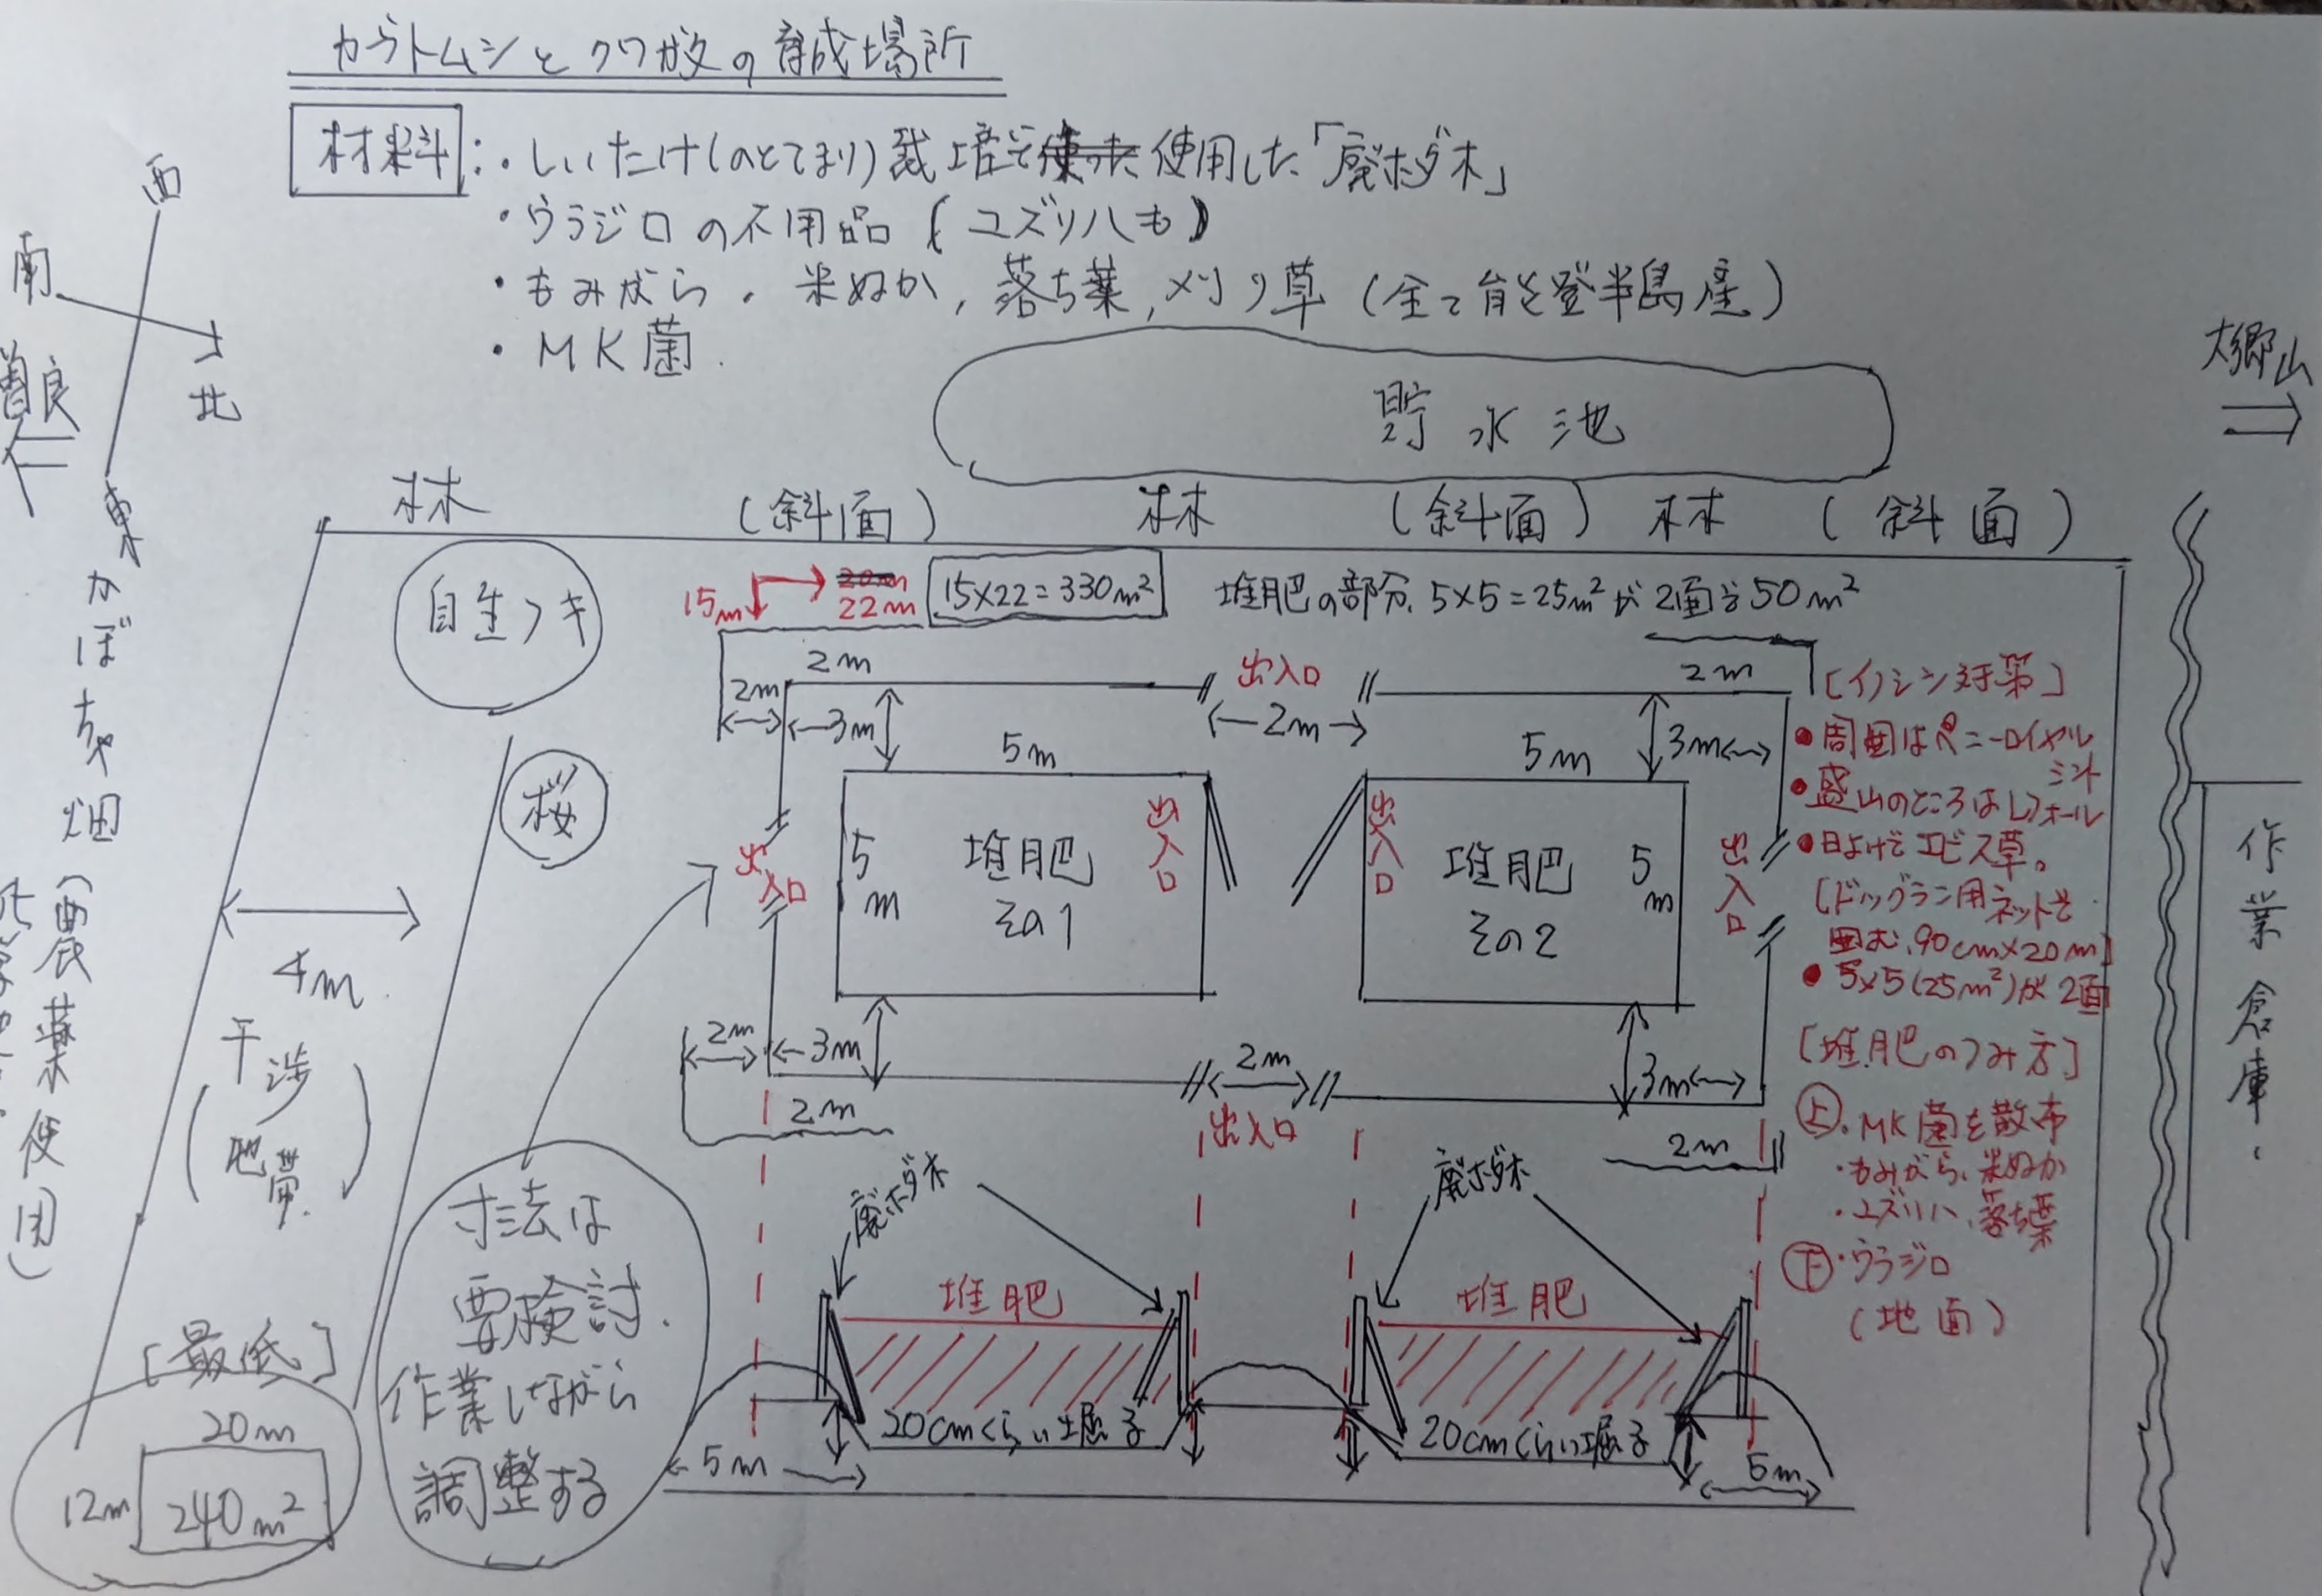 カブトムシとクワガタの育成場所
材料:・しいたけ(のとてまり)栽培で使用した「廃ホダ木」
・ウラジロの不用品(ユズリハも)
・もみがら、米ぬか、落ち葉、刈り草(全て能登半島産)
・MK菌
西
南
北
東
曽良
大郷山
貯水池
林 (斜面) 林 (斜面) 林 (斜面)
自生フキ
15m
20m
22m
15×22=330m²
堆肥の部分、5×5=25m²が2面で50m²
桜
かぼちゃ畑(農薬使用)
4m
干渉
地帯
2m
出入口
2m
2m
3m
2m
3m
5m
5m
[イノシシ対策]
・周囲はペニーロイヤル
ミント
・盛山のところはレフォール
・日よけでエビス草。
[ドッグラン用ネットを
囲む、90cm×20m]
・5×5(25m²)が2面
出入口
5m
堆肥
その1
出入口
出入口
堆肥
その2
5m
出入口
作業倉庫
2m
3m
2m
3m
2m
出入口
2m
[堆肥のつみ方]
上・MK菌を散布
・もみがら、米ぬか
・ユズリハ、落ち葉
下・ウラジロ
(地面)
寸法は
要検討
作業しながら
調整する
廃ホダ木
廃ホダ木
堆肥
堆肥
20cmくらい堀る
20cmくらい堀る
5m
5m
[最低]
20m
12m
240m²